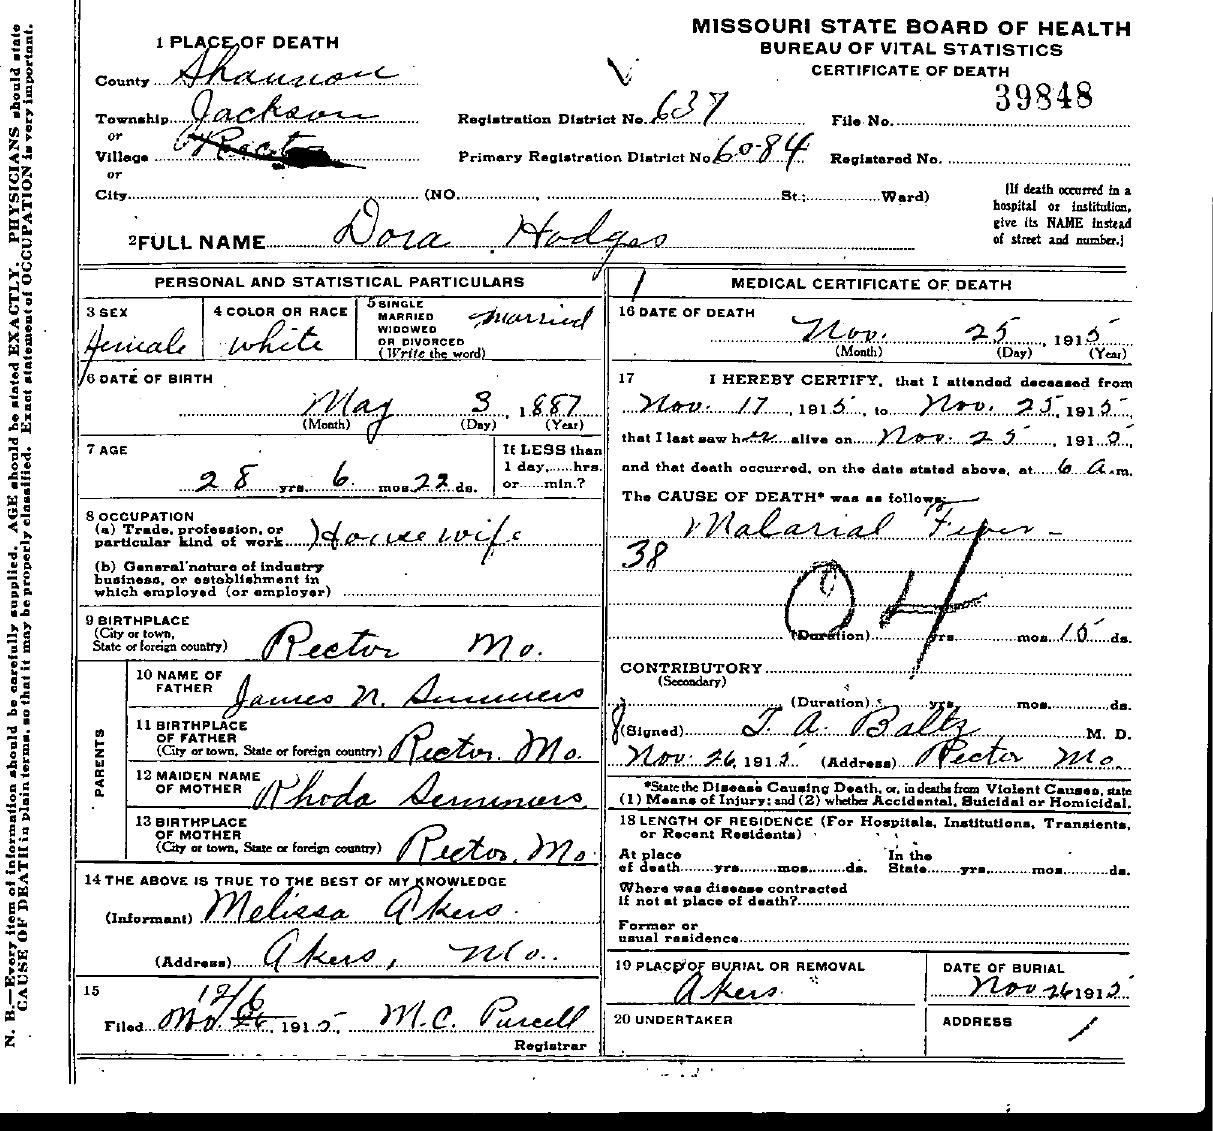 MISSOURI STATE BOARD OF HEALTH
BUREAU OF VITAL STATISTICS
CERTIFICATE OF DEATH
1 PLACE OF DEATH
County Shannon
Township Jackson
or
Village
or
City (NO. St.; Ward)
Registration District No. 637
Primary Registration District No 6084
File No. 39848
Registered No.
(If death occurred in a
hospital or institution,
give its NAME instead
of street and number.)
2 FULL NAME Dora Hodges
PERSONAL AND STATISTICAL PARTICULARS
3 SEX
Female
4 COLOR OR RACE
White
5 SINGLE
MARRIED
WIDOWED
OR DIVORCED
(Write the word)
Married
6 DATE OF BIRTH
May 3, 1887
(Month) (Day) (Year)
7 AGE
28 yrs. 6 mos. 22 ds.
If LESS than
1 day,.....hrs.
or.....min.?
8 OCCUPATION
(a) Trade, profession, or
particular kind of work Housewife
(b) General nature of industry
business, or establishment in
which employed (or employer)
9 BIRTHPLACE
(City or town,
State or foreign country) Rector Mo.
PARENTS
10 NAME OF
FATHER James N. Summers
11 BIRTHPLACE
OF FATHER
(City or town, State or foreign country) Rector, Mo.
12 MAIDEN NAME
OF MOTHER Rhoda Summers
13 BIRTHPLACE
OF MOTHER
(City or town, State or foreign country) Rector, Mo.
14 THE ABOVE IS TRUE TO THE BEST OF MY KNOWLEDGE
(Informant) Melissa Akers.
(Address) Akers, Mo.
15
12/6
Filed 1915, M.C. Purcell
Registrar
MEDICAL CERTIFICATE OF DEATH
16 DATE OF DEATH
Nov. 25, 1915
(Month) (Day) (Year)
17 I HEREBY CERTIFY, that I attended deceased from
Nov. 17, 1915, to Nov. 25, 1915,
that I last saw her alive on Nov. 25, 1915,
and that death occurred, on the date stated above, at 6 a.m.
The CAUSE OF DEATH* was as follows:
Malarial Fever -
38
04
(Duration) yrs. mos. 15 ds.
CONTRIBUTORY
(Secondary)
(Duration) yrs. mos. ds.
(Signed) T. A. Baltz M. D.
Nov. 26, 1915 (Address) Rector Mo.
*State the Disease Causing Death, or, in deaths from Violent Causes, state
(1) Means of Injury; and (2) whether Accidental, Suicidal or Homicidal.
18 LENGTH OF RESIDENCE (For Hospitals, Institutions, Transients,
or Recent Residents)
At place
of death yrs. mos. ds.
In the
State yrs. mos. ds.
Where was disease contracted
if not at place of death?
Former or
usual residence
19 PLACE OF BURIAL OR REMOVAL
Akers.
DATE OF BURIAL
Nov 26 1915
20 UNDERTAKER
ADDRESS
N. B.—Every item of information should be carefully supplied. AGE should be stated EXACTLY. PHYSICIANS should state
CAUSE OF DEATH in plain terms, so that it may be properly classified. Exact statement of OCCUPATION is very important.